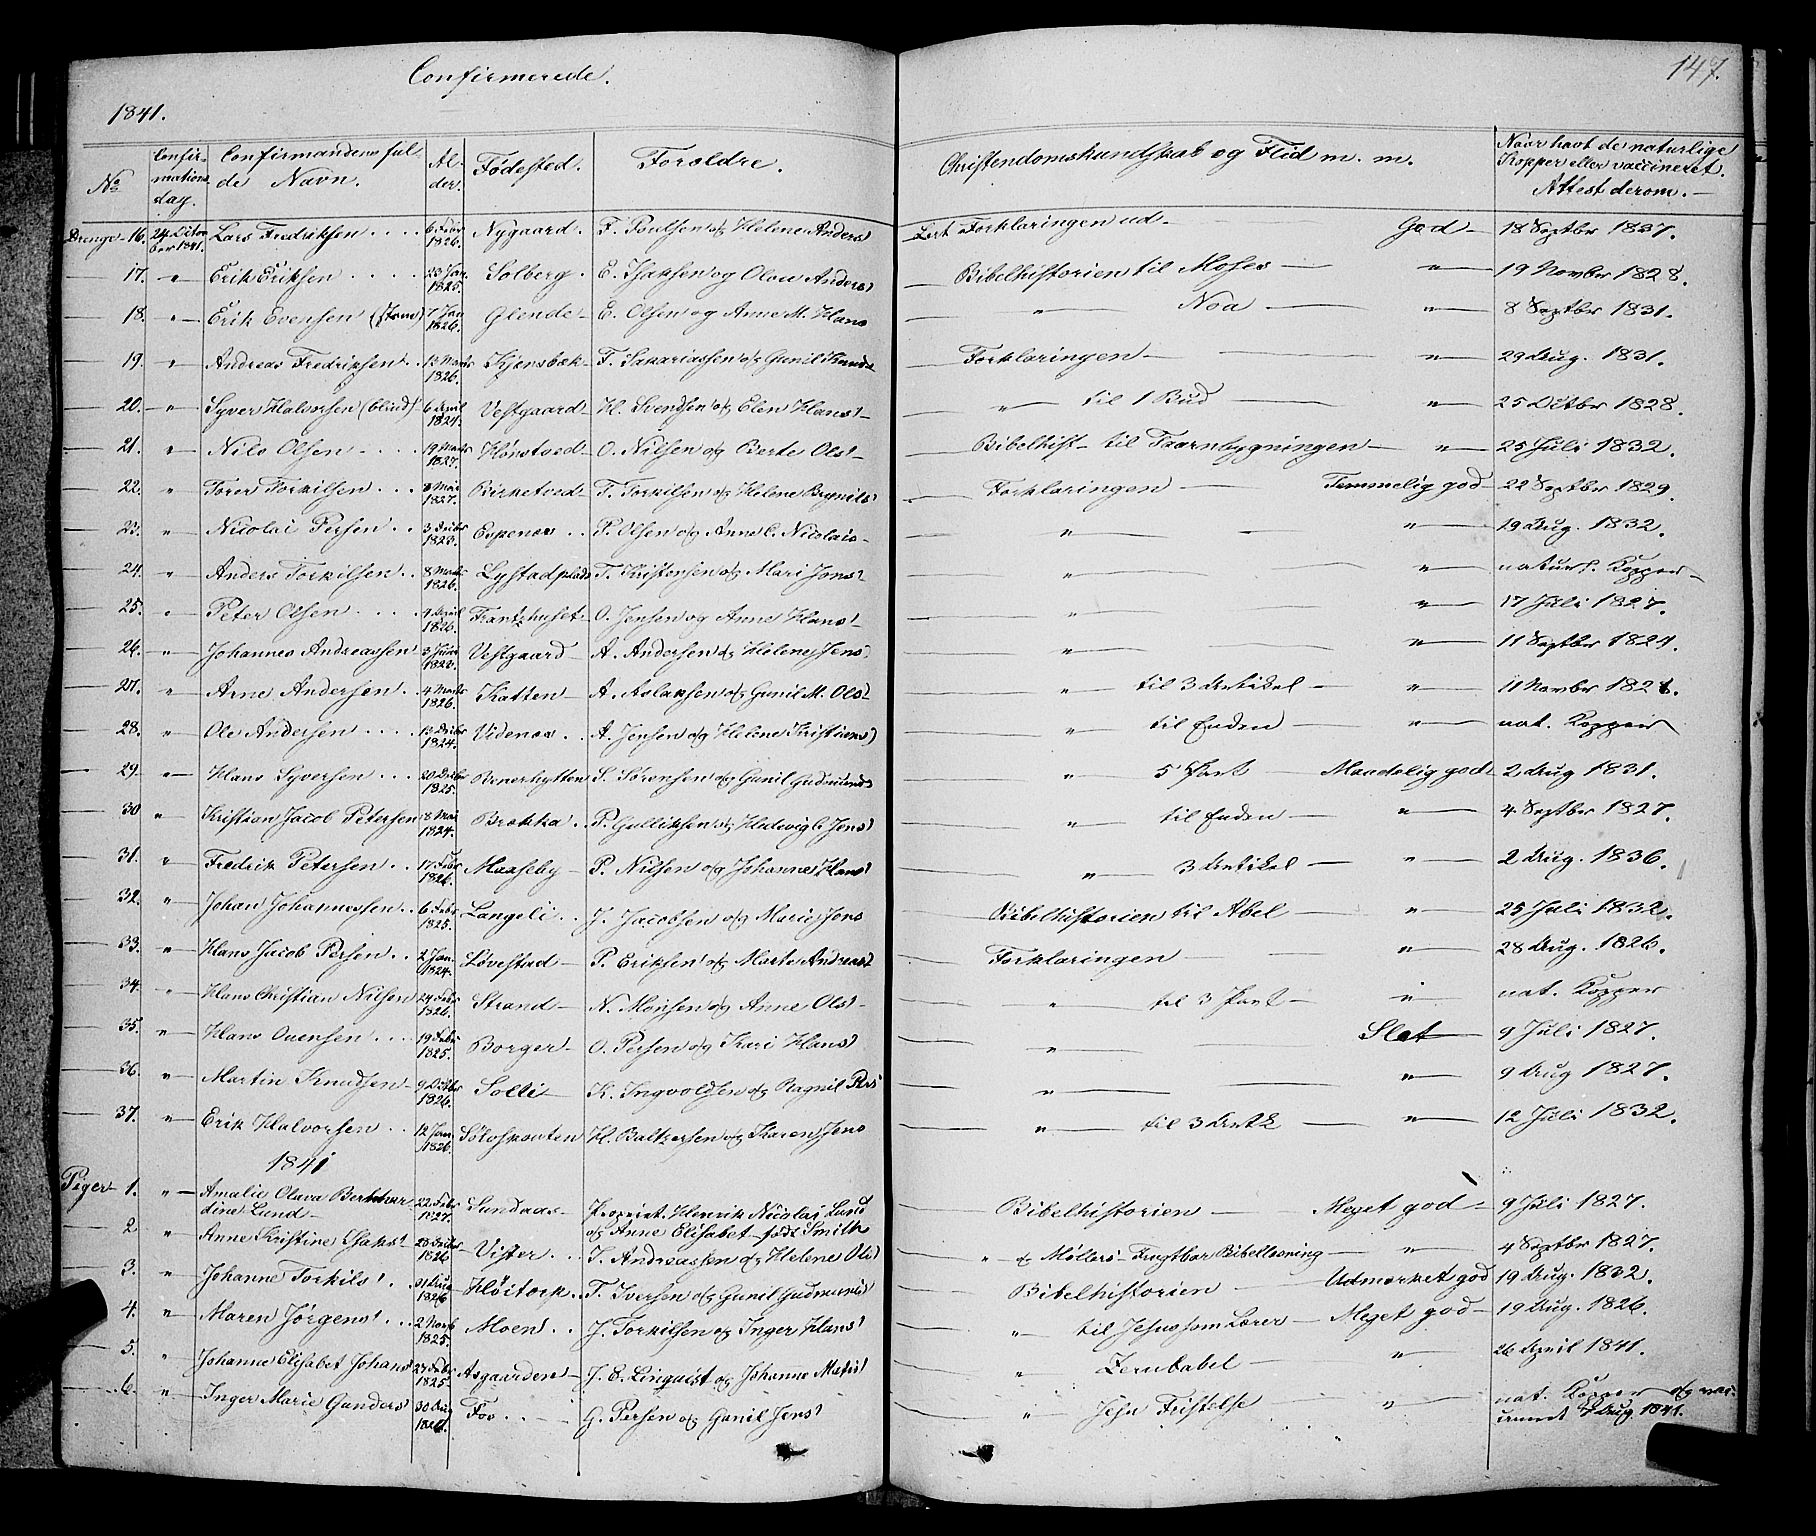 Confirmerede.
147.
1841.
No Confirmations dag. Confirmandens fulde Navn. Alder. Fødested. Foroldre. Christendomskundskab og Flid m. m. Naar havt de naturlige Kopper eller vaccineret. Attest derom.
Drenge 16. 24 Octo ber 1841. Lars Fredriksen 6 Febr 1826. Nygaard F. Poulsen og Helene Anders Lært Forklaringen ud God 18 Septbr 1837.
17. " Erik Eriksen 23 Jan 1825. Solberg E. Isaksen og Olea Anders Bibelhistorien til Moses " 19 Novbr 1828.
18. " Erik Evensen 7 Jan 1826. Glende E. Olsen og Anne M. Hans " Noa " 8 Septbr 1831.
19. " Andreas Fredriksen 12 Marts 1826. Kjensbæk F. Sakariassen og Gunil Knuds Forklaringen " 29 Aug. 1831.
20. " Syver Halvorsen (blind) 6 April 1824. Vestgaard H. Svendsen og Elen Hans " til 1 Bud " 25 Octbr 1828.
21. " Nils Olsen 19 Marts 1827. Hønstved O. Nilsen og Berte Ols Bibelhist til Taarnbygningen " 25 Juli 1832.
22. " Torer Torkilsen Mai 1827. T. Torkilsen og Helene Brynils Forklaringen Temmelig god 22 Septbr 1829.
23. " Nicolai Persen 3 1825. Espenes P. Olsen og Anne C. Nicolais " " 19 Aug. 1832.
24. " Anders Torkilsen 8 Marts 1826. Lystad plads T. Kristensen og Mari Jens " " naturl. Kopper
25. " Peter Olsen 4 April 1826. Frantzhuset O. Jensen og Anne Hans " " 17 Juli 1827.
26. " Johannes Andreassen 3 Vestgaard A. Andersen og Helene Jens " " 11 Septbr
27. " Arne Andersen 4 Marts 1826. Katten A. Aslaksen og Gunil M. Ols " til 3 Artikel " 11 Novbr
28. " Ole Andersen 1824. Videnes A. Jensen og Helene Kristians " til Enden " nat. Kopper
29. " Hans Syversen 20 1825. S. Sørensen og Gunil Gudmunds " 5 Part Maadelig god 2 Aug 1831.
30 " Kristian Jacob Petersen 8 Mai 1824. Brekka P. Gulliksen og Hedwig Jens " til Enden " 4 Septbr 1827.
31. " Fredrik Petersen 17 Febr 1826. P. Nilsen og Johanne Hans " 3 Artikel " 2 Aug. 1836.
32. " Johan Johannessen 6 Febr 1825. Langeli J. Jacobsen og Marie Jens Bibelhistorien til Abel " 25 Juli 1832.
33. " Hans Jacob Persen 2 Jan. 1824. Løvestad P. Eriksen og Marte Andreas Forklaringen " 28 Aug. 1826.
34. " Hans Christian Nilsen 24 Febr 1826. Strand N. Monsen og Anne Ols " til 3 Part " nat. Kopper
35. " Hans Ouensen 19 Febr 1825. Borger O. Persen og Kari Hans " Slet 9 Juli 1827.
36. " Martin Knudsen 9 Octbr 1826. Solli K. Ingvoldsen og Ragnil Pers " " 9 Aug 1827.
37. " Erik Halvorsen 12 Jan 1826. H. Baltzersen og Karen Jens " til 3 Artk " 12 Juli 1832.
1841
Piger 1. " Amalie Olava Bernhardine Lund 22 Febr 1827. Sundaas Propriet. Henrik Nicolai Lund og Anne Elisabet født Smith Bibelhistorien Meget god 9 Juli 1827.
2 " Anne Kristine Isaks 1826 Vister I. Andreassen og Helene Ols " & Møllers Frugtbar Bibellesning " 4 Septbr 1827.
3. " Johanne Torkils 31 Aug 1826 Høitorp T. Iversen og Gunil Gudmunds Bibelhistorien Udmerket god 19 Aug. 1832.
4. " Maren Jørgens 2 Novb 1825. Moen J. Torkilsen og Inger Hans " til Jesus som Lærer Meget god 19 Aug. 1826.
5. " Johanne Elisabet Johans 27 Febr 1825. Aasgaarden J. E. Linquist og Johanne Matis " Zerubabel " 26 April 1841.
6. " Inger Marie Gunders 30 Aug 1826. Fos G. Persen og Gunil Jens " Jesu Fristelse " nat. Kopper og vaccineret 7 Aug. 1841.